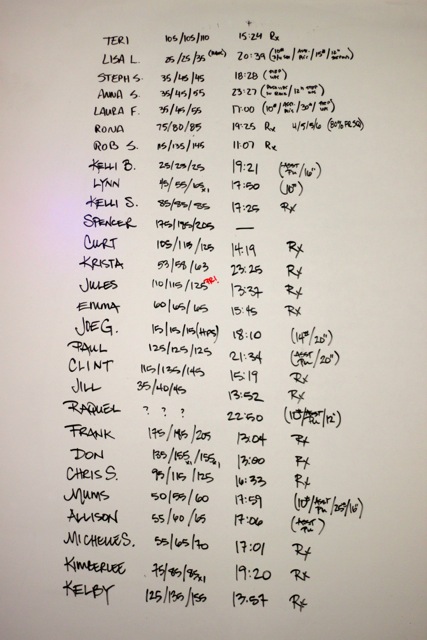 TERI 105/105/110 15:24 Rx
LISA L. 25/25/35 20:39
STEPH S. 35/45/45 18:28
ANNA S. 35/45/55 23:27
LAURA F. 35/45/55 17:00
RONA 75/80/85 19:25 Rx 4/5/5/6
ROB S. 115/135/145 11:07 Rx
KELLI B. 25/25/25 19:21
LYNN 45/55/65x1 17:50 (10#)
KELLI S. 85/85/85 17:25 Rx
SPENCER 175/185/205 —
CURT 105/115/125 14:19 Rx
KRISTA 53/58/63 23:25 Rx
JULES 110/115/125 PR! 13:37 Rx
EMMA 60/65/65 15:45 Rx
JOE G. 15/15/15 (HPS) 18:10 (14#/20")
PAUL 125/125/125 21:34
CLINT 115/135/145 15:19 Rx
JILL 35/40/45 13:52 Rx
RAQUEL ? ? ? 22:50
FRANK 175/195/205 13:04 Rx
DON 135/155x1/155x1 13:00 Rx
CHRIS S. 95/115/125 16:33 Rx
MUMS 50/55/60 17:59
ALLISON 55/60/65 17:06
MICHELLE S. 55/65/70 17:01 Rx
KIMBERLEE 75/85/85x1 19:20 Rx
KELBY 125/135/155 13:57 Rx